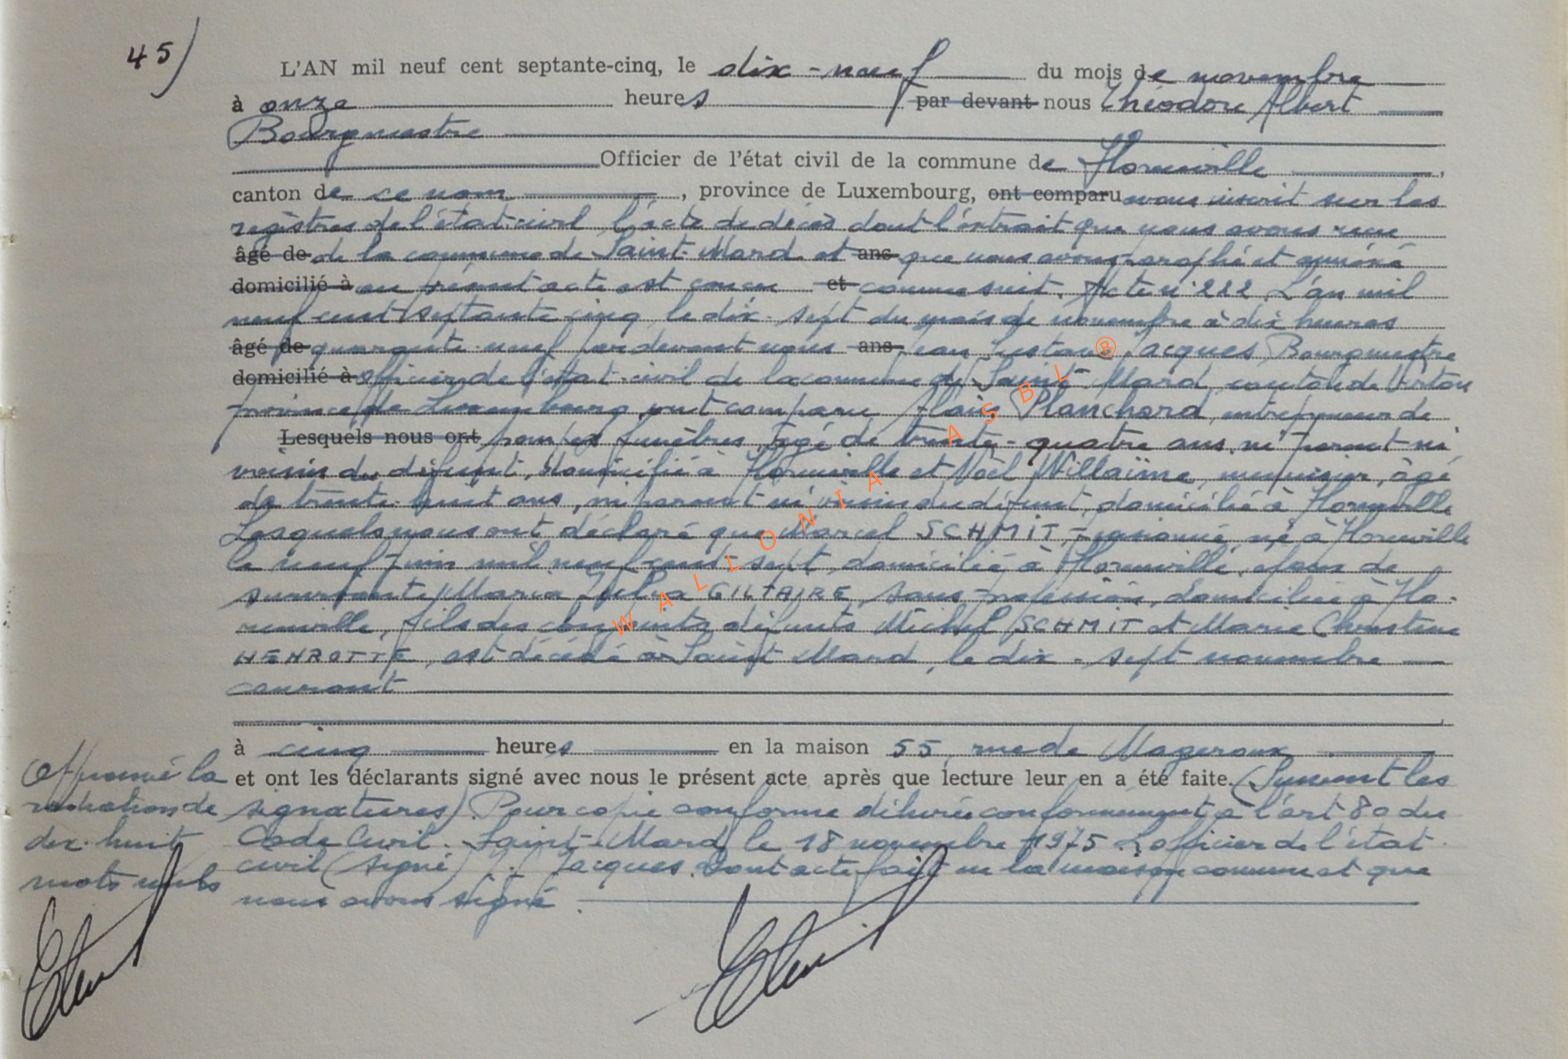 45)
L'AN mil neuf cent septante-cinq, le dix-neuf du mois de novembre
à onze heures par devant nous Théodore Albert
Bourgmestre
Officier de l'état civil de la commune de Florenville,
canton de ce nom, province de Luxembourg, ont comparu nous inscrit sur les
registres de l'état-civil l'acte de décès dont l'extrait que nous avons reçu
âgé de de la commune de Saint-Mard et ans que nous avons paraphé et annexé
domicilié à au présent acte est conçu et comme suit. Acte n° 222. L'an mil
neuf cent septante cinq le dix-sept du mois de novembre à dix heures
âgé de quarante neuf par devant nous ans Jean Gustave Jacques Bourgmestre
domicilié à officier de l'état-civil de la commune de Saint-Mard canton de Virton
province de Luxembourg, ont comparu Alain Planchard, entrepreneur de
Lesquels nous ont pompes funèbres, âgé de trente-quatre ans, ni parent ni
voisin du défunt, domicilié à Florenville et Noël Willaime, menuisier, âgé
de trente-huit ans, ni parent ni voisin du défunt, domicilié à Florenville
Lesquels nous ont déclaré que Marcel SCHMIT, pensionné né à Florenville
le neuf juin mil neuf cent sept domicilié à Florenville, époux de
survivante Maria Julia GILTAIRE, sans profession, domiciliée à Flo-
renville, fils des conjoints défunts Michel SCHMIT et Marie Christine
HENROTTE, est décédé à Saint Mard, le dix-sept novembre
courant
à cinq heures en la maison 55 rue de Mageroux
et ont les déclarants signé avec nous le présent acte après que lecture leur en a été faite. (Suivent les
signatures). Pour copie conforme délivrée conformément à l'art 80 du
Code Civil. Saint-Mard le 18 novembre 1975 L'officier de l'état
civil (signé) : Jacques. Dont acte fait en la maison commune et que
nous avons signé.
Approuvé la
radiation de
dix-huit
mots nuls
WALLONIA ASBL ®